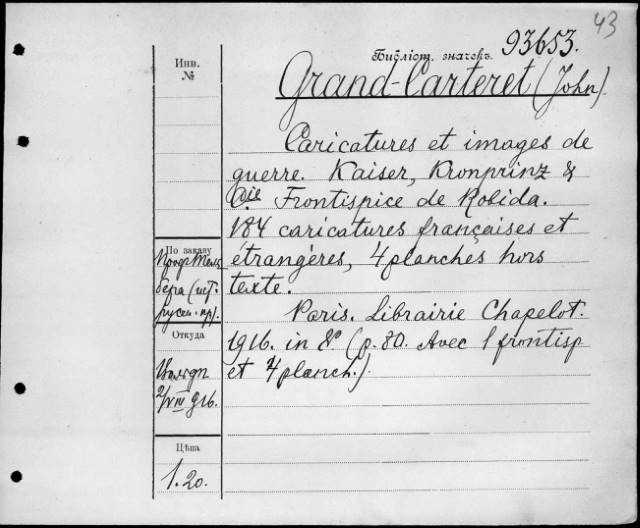 43
93653.
Инв.
№
Библіот. значекъ.
Grand-Carteret (John).
Caricatures et images de
guerre. Kaiser, Kronprinz &
Cie Frontispice de Robida.
184 caricatures françaises et
étrangères, 4 planches hors
texte.
Paris. Librairie Chapelot.
1916. in 8º (p. 80. Avec 1 frontisp
et 4 planch.).
По заказу
Откуда
2/VIII 916.
Цѣна
1.20.